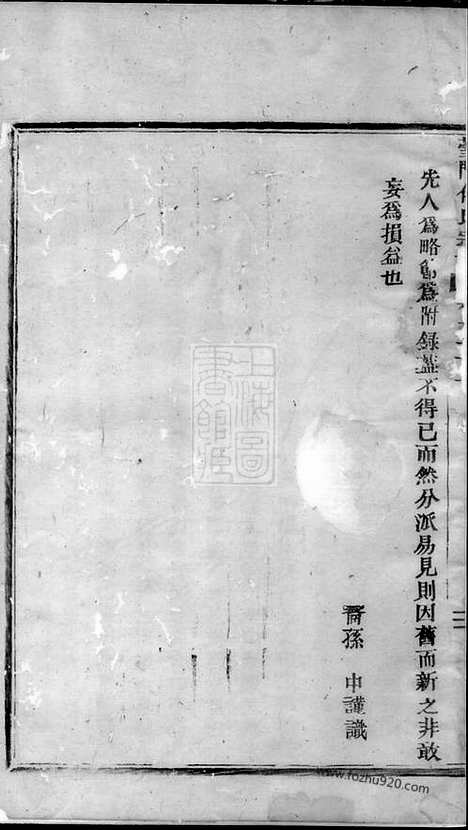 先人為略為附錄蓋不得已而然分派易見則因舊而新之非敢
妄為損益也
裔孫　申謹識
上海圖
書館藏
www.fozhu920.com